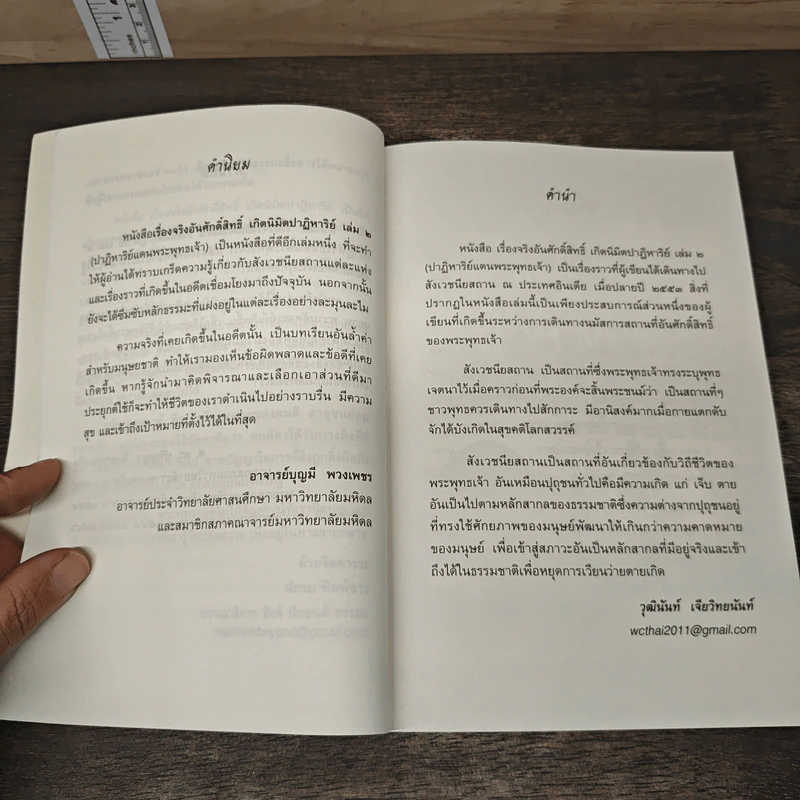 คำนิยม
หนังสือเรื่องจริงอันศักดิ์สิทธิ์ เกิดนิมิตปาฏิหาริย์ เล่ม ๒
(ปาฏิหาริย์แดนพระพุทธเจ้า) เป็นหนังสือที่ดีอีกเล่มหนึ่ง ที่จะทำ
ให้ผู้อ่านได้ทราบเกร็ดความรู้เกี่ยวกับสังเวชนียสถานแต่ละแห่ง
และเรื่องราวที่เกิดขึ้นในอดีตเชื่อมโยงมาถึงปัจจุบัน นอกจากนั้น
ยังจะได้ซึมซับหลักธรรมะที่แฝงอยู่ในแต่ละเรื่องอย่างละมุนละไม
ความจริงที่เคยเกิดขึ้นในอดีตนั้น เป็นบทเรียนอันล้ำค่า
สำหรับมนุษยชาติ ทำให้เรามองเห็นข้อผิดพลาดและข้อดีที่เคย
เกิดขึ้น หากรู้จักนำมาคิดพิจารณาและเลือกเอาส่วนที่ดีมา
ประยุกต์ใช้ก็จะทำให้ชีวิตของเราดำเนินไปอย่างราบรื่น มีความ
สุข และเข้าถึงเป้าหมายที่ตั้งไว้ได้ในที่สุด
อาจารย์บุญมี พวงเพชร
อาจารย์ประจำวิทยาลัยศาสนศึกษา มหาวิทยาลัยมหิดล
และสมาชิกสภาคณาจารย์มหาวิทยาลัยมหิดล
คำนำ
หนังสือ เรื่องจริงอันศักดิ์สิทธิ์ เกิดนิมิตปาฏิหาริย์ เล่ม ๒
(ปาฏิหาริย์แดนพระพุทธเจ้า) เป็นเรื่องราวที่ผู้เขียนได้เดินทางไป
สังเวชนียสถาน ณ ประเทศอินเดีย เมื่อปลายปี ๒๕๕๓ สิ่งที่
ปรากฏในหนังสือเล่มนี้เป็นเพียงประสบการณ์ส่วนหนึ่งของผู้
เขียนที่เกิดขึ้นระหว่างการเดินทางนมัสการสถานที่อันศักดิ์สิทธิ์
ของพระพุทธเจ้า
สังเวชนียสถาน เป็นสถานที่ซึ่งพระพุทธเจ้าทรงระบุพุทธ
เจตนาไว้เมื่อคราวก่อนที่พระองค์จะสิ้นพระชนม์ว่า เป็นสถานที่ๆ
ชาวพุทธควรเดินทางไปสักการะ มีอานิสงค์มากเมื่อกายแตกดับ
จักได้บังเกิดในสุขคติโลกสวรรค์
สังเวชนียสถานเป็นสถานที่อันเกี่ยวข้องกับวิถีชีวิตของ
พระพุทธเจ้า อันเหมือนปุถุชนทั่วไปคือมีความเกิด แก่ เจ็บ ตาย
อันเป็นไปตามหลักสากลของธรรมชาติซึ่งความต่างจากปุถุชนอยู่
ที่ทรงใช้ศักยภาพของมนุษย์พัฒนาให้เกินกว่าความคาดหมาย
ของมนุษย์ เพื่อเข้าสู่สภาวะอันเป็นหลักสากลที่มีอยู่จริงและเข้า
ถึงได้ในธรรมชาติเพื่อหยุดการเวียนว่ายตายเกิด
วุฒินันท์ เจียวิทยนันท์
wcthai2011@gmail.com
inches
1
2